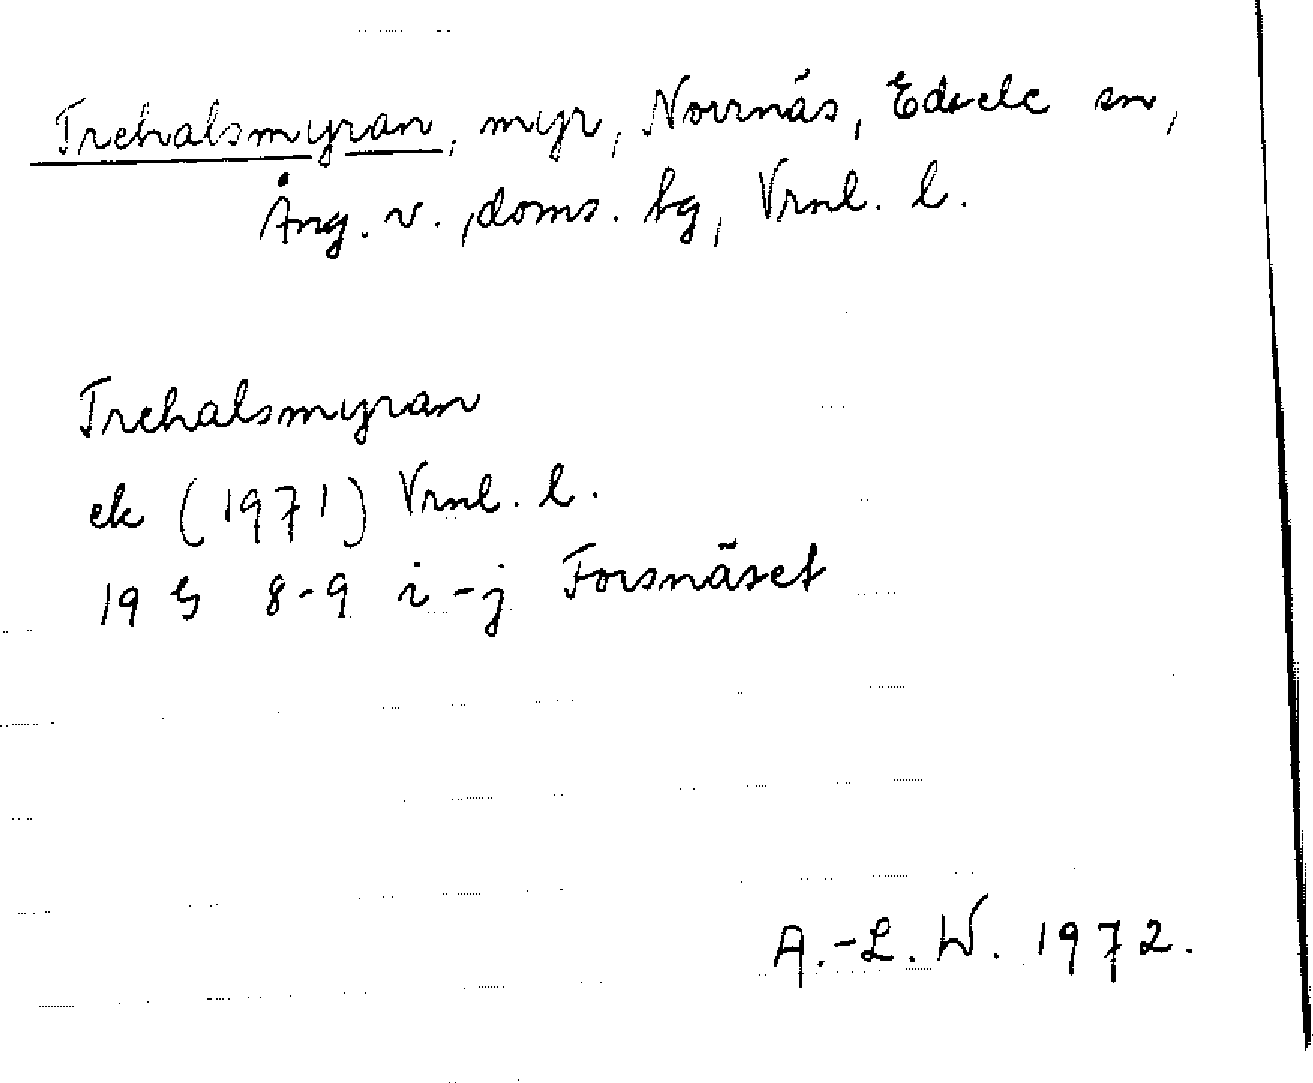 Trehalsmyran, myr, Norrnäs, Edsele sn,
Ång. v., doms. bg, Vrnl. l.
Trehalsmyran
ek (1971) Vrnl. l.
19 G 8-9 i-j Forsnäset
A.-L. W. 1972.